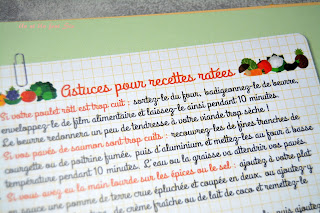 Astuces pour recettes ratées
Si votre poulet rôti est trop cuit : sortez-le du four, badigeonnez-le de beurre,
enveloppez-le de film alimentaire et laissez-le ainsi pendant 10 minutes.
Le beurre redonnera un peu de tendresse à votre viande trop sèche !
Si vos pavés de saumon sont trop cuits : recouvrez-les de fines tranches de
courgette ou de poitrine fumée, puis d'aluminium et mettez-les au four à basse
température pendant 10 minutes. L'eau ou la graisse va attendrir vos pavés.
Si vous avez eu la main lourde sur les épices ou le sel : ajoutez à votre plat
ou sauce une pomme de terre crue épluchée et coupée en deux, ou ajoutez-y
de crème fraîche ou de lait de coco et remettez-le